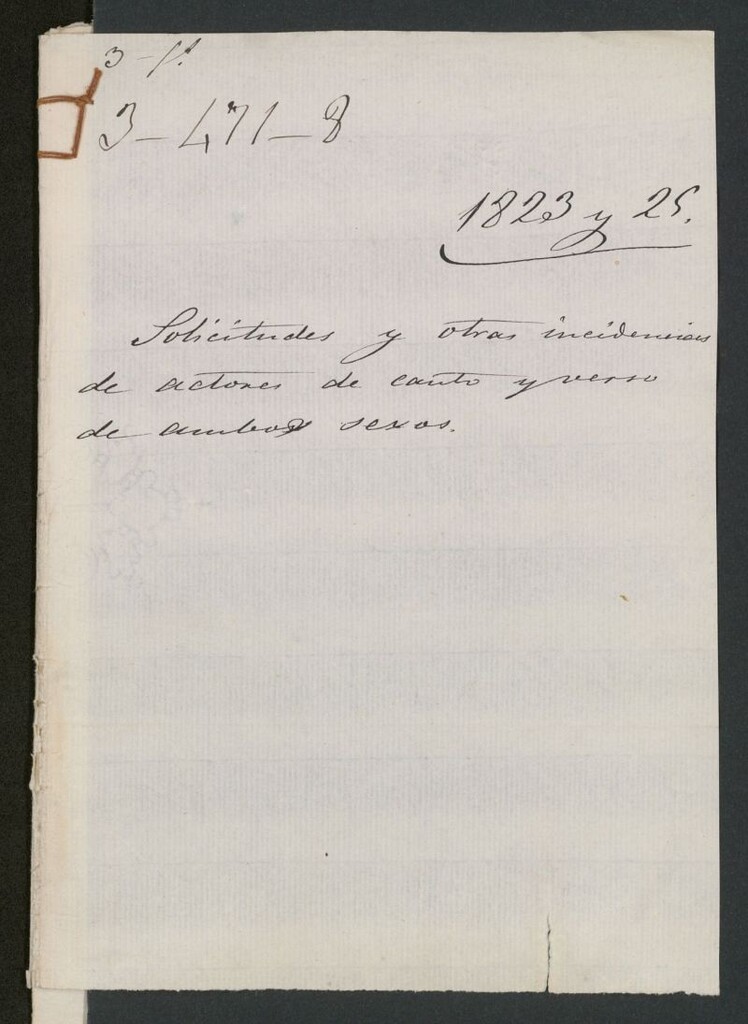 3-471-8
1823 y 25.
Solicitudes y otras incidencias
de actores de canto y verso
de ambos sexos.